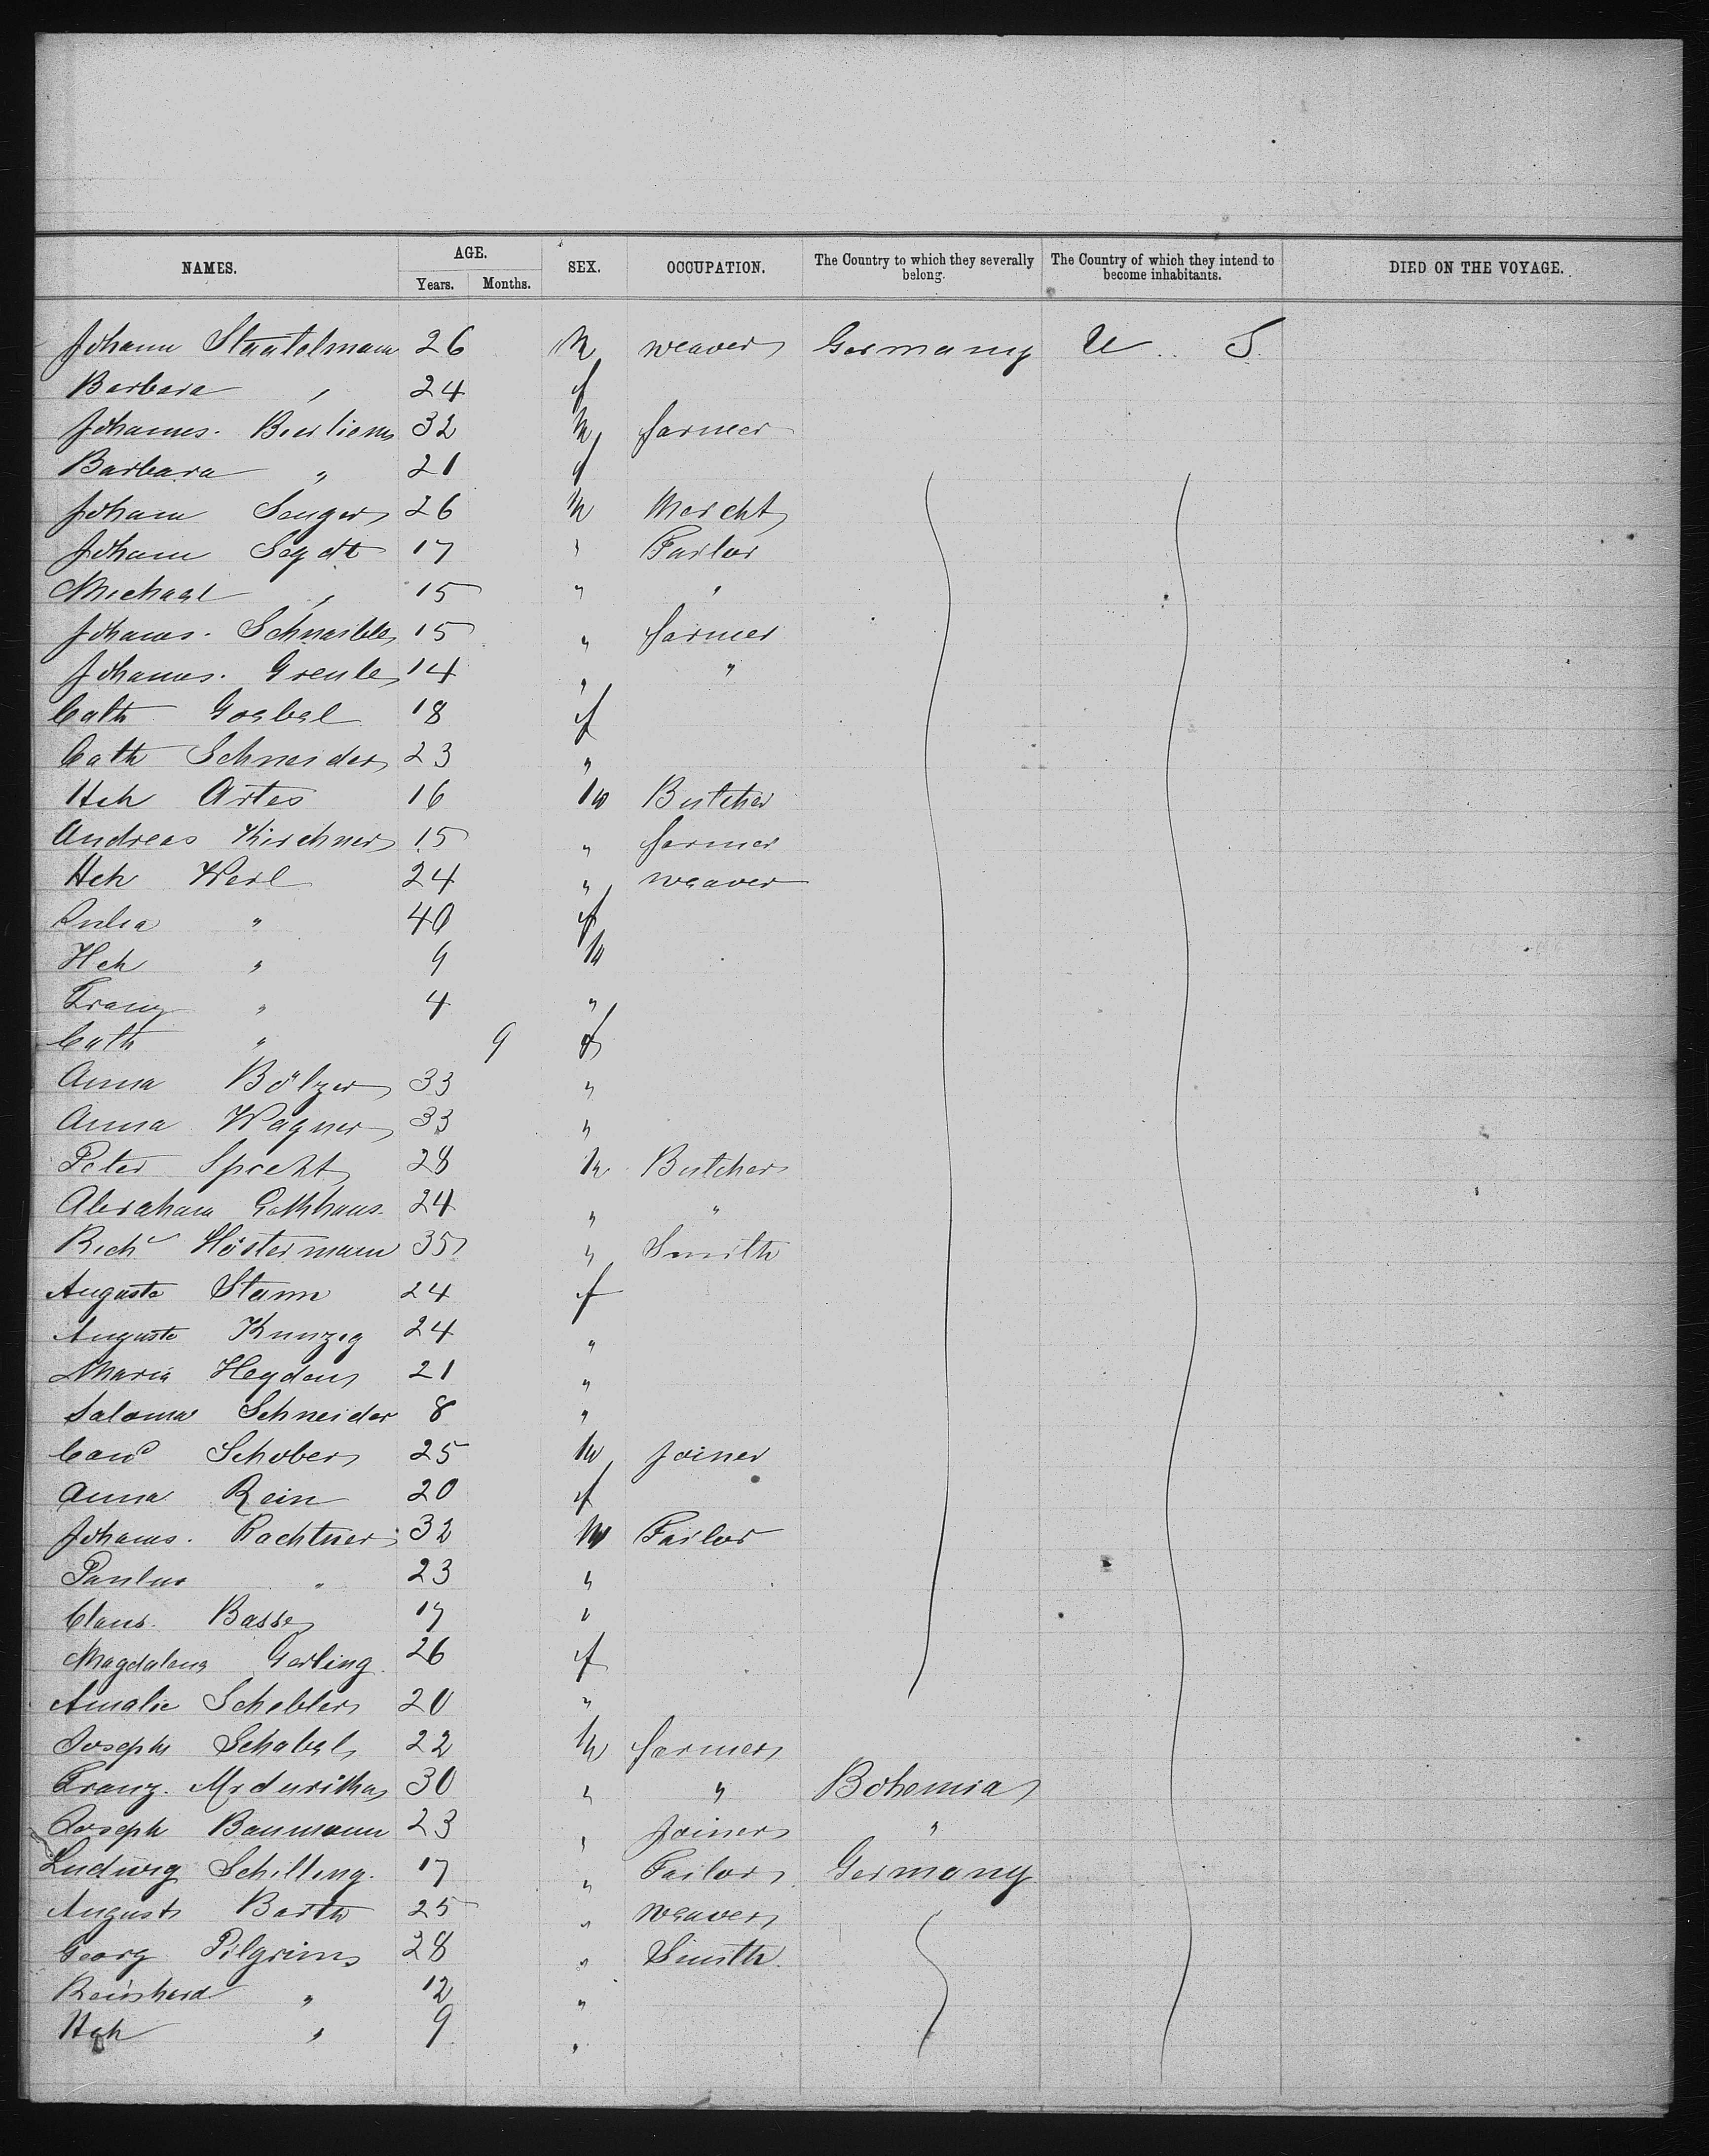 NAMES. AGE. SEX. OCCUPATION. The Country to which they severally belong. The Country of which they intend to become inhabitants. DIED ON THE VOYAGE.
Years. Months.
Johann 26 m weaver Germany U. S.
Barbara " 24 f
Johannes. 32 m farmer
Barbara " 21 f
Johann Senger 26 m Mercht
Johann 17 " Tailor
Michael " 15 " "
Johannes. Schnaible 15 " farmer
Johannes. Greule 14 " "
Cath Goebel 18 f
Cath Schneider 23 "
Hch Artes 16 m Butcher
Andreas Kirchner 15 " farmer
Hch Werl 24 " weaver
Julia " 40 f
Hch " 9 m
Franz " 4 "
Cath " 9 f
Anna Bölzer 33 "
Anna Wagner 33 "
Peter Specht 28 m Butcher
Abraham 24 " "
Richd Höstermann 35 " Smith
Auguste Stamm 24 f
Auguste Kunzeg 24 "
Maria Heyden 21 "
Saloma Schneider 8 "
Schober 25 m Joiner
Anna Rein 20 f
Johannes. Rachtner 32 m Tailor
Paulus " 23 "
Claus. Basse 17 "
Magdalena Gerling. 26 f
Amalie Schebler 20 "
Joseph Schabel 22 m farmer
Franz. 30 " " Bohemia
Joseph Baumann 23 " Joiner "
Ludwig Schilling. 17 " Tailor Germany
August Barth 25 " weaver
Georg Pilgrim 28 " Smith.
Reinhard " 12 "
Hch " 9 "